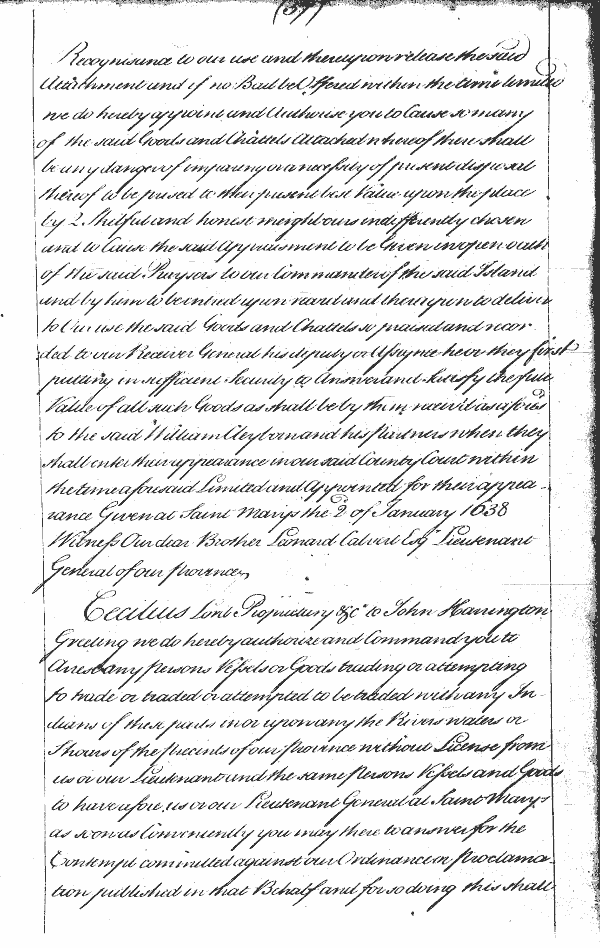 (37)
Recognisance to our use and thereupon release the said
Attachment and if no Bail be Offered within the time limited
we do hereby appoint and Authorise you to Cause so many
of the said Goods and Chattels Attached whereof there shall
be any danger of impairing or a necessity of present disposal
thereof to be prised to their present best Value upon the place
by 2. Skilful and honest neighbours indifferently chosen
and to Cause the said Appraisment to be Given in open oath
of the said Praysors to our Commander of the said Island
and by him to be entred upon record and thereupon to deliver
to Our use the said Goods and Chattels so praised and recor-
ded to our Receiver General his deputy or Assignee he or they first
putting in sufficient Security to Answer and Satisfy the full
Value of all such Goods as shall be by them received as afores'd
to the said William Cleyborn and his Partners when they
shall enter their appearance in our said County Court within
the time aforesaid Limited and Appointed for their appea-
rance Given at Saint Marys the 2 of January 1638
Witness Our dear Brother Leonard Calvert Esq Lieutenant
General of our Province,
Cecilius Lord Proprietary &c to John Harrington
Greeting we do hereby authorize and Command you to
Arrest any Persons Vessels or Goods trading or attempting
to trade or traded or attempted to be traded with any In-
dians of these parts in or upon any the Rivers waters or
Shours of the precincts of our Province without License from
us or our Lieutenant and the same Persons Vessels and Goods
to have afore us or our Lieutenant General at Saint Marys
as soon as Conveniently you may there to answer for the
Contempt committed against our Ordinance or Proclama-
tion published in that Behalf and for so doing this shall